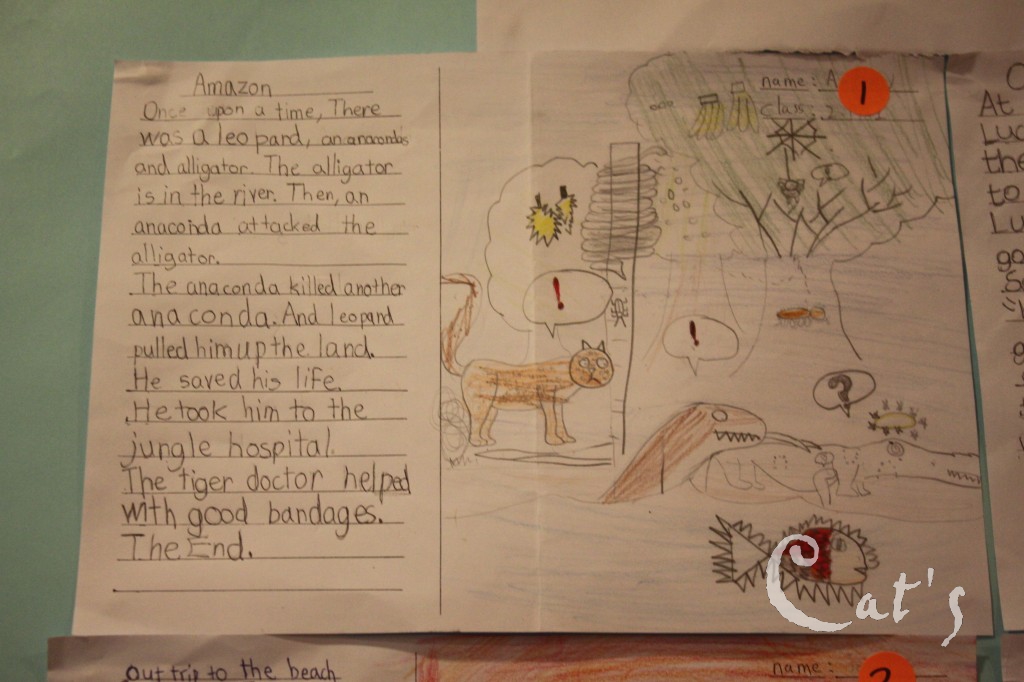 Amazon
Once upon a time, There
was a leopard, an anaconda
and alligator. The alligator
is in the river. Then, an
anaconda attacked the
alligator.
The anaconda killed another
anaconda. And leopard
pulled him up the land.
He saved his life.
He took him to the
jungle hospital.
The tiger doctor helped
with good bandages.
The End.
name: A
1
class: 2
!
!
?
Cat's
At
Luc
the
to
Lu
go
out trip to the beach
name:
2